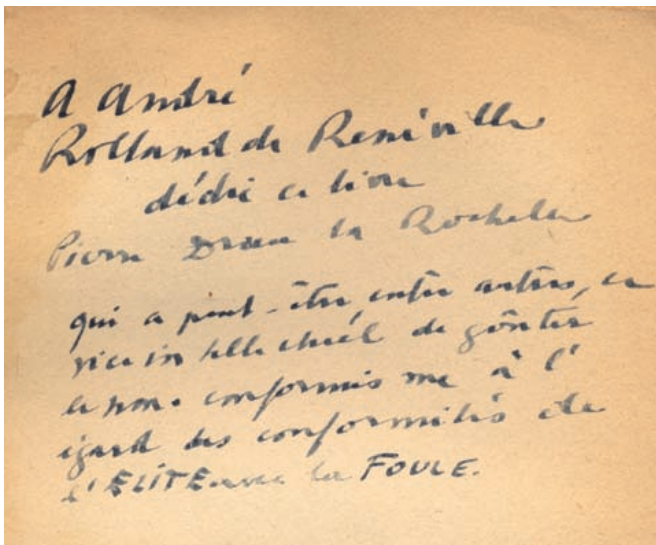 A André
Rolland de Renéville
dédie ce livre
Pierre Drieu la Rochelle
qui a peut-être, entre autres, ce
vice intellectuel de goûter
le non-conformisme à l'
égard des conformités de
l'ELITE avec la FOULE.